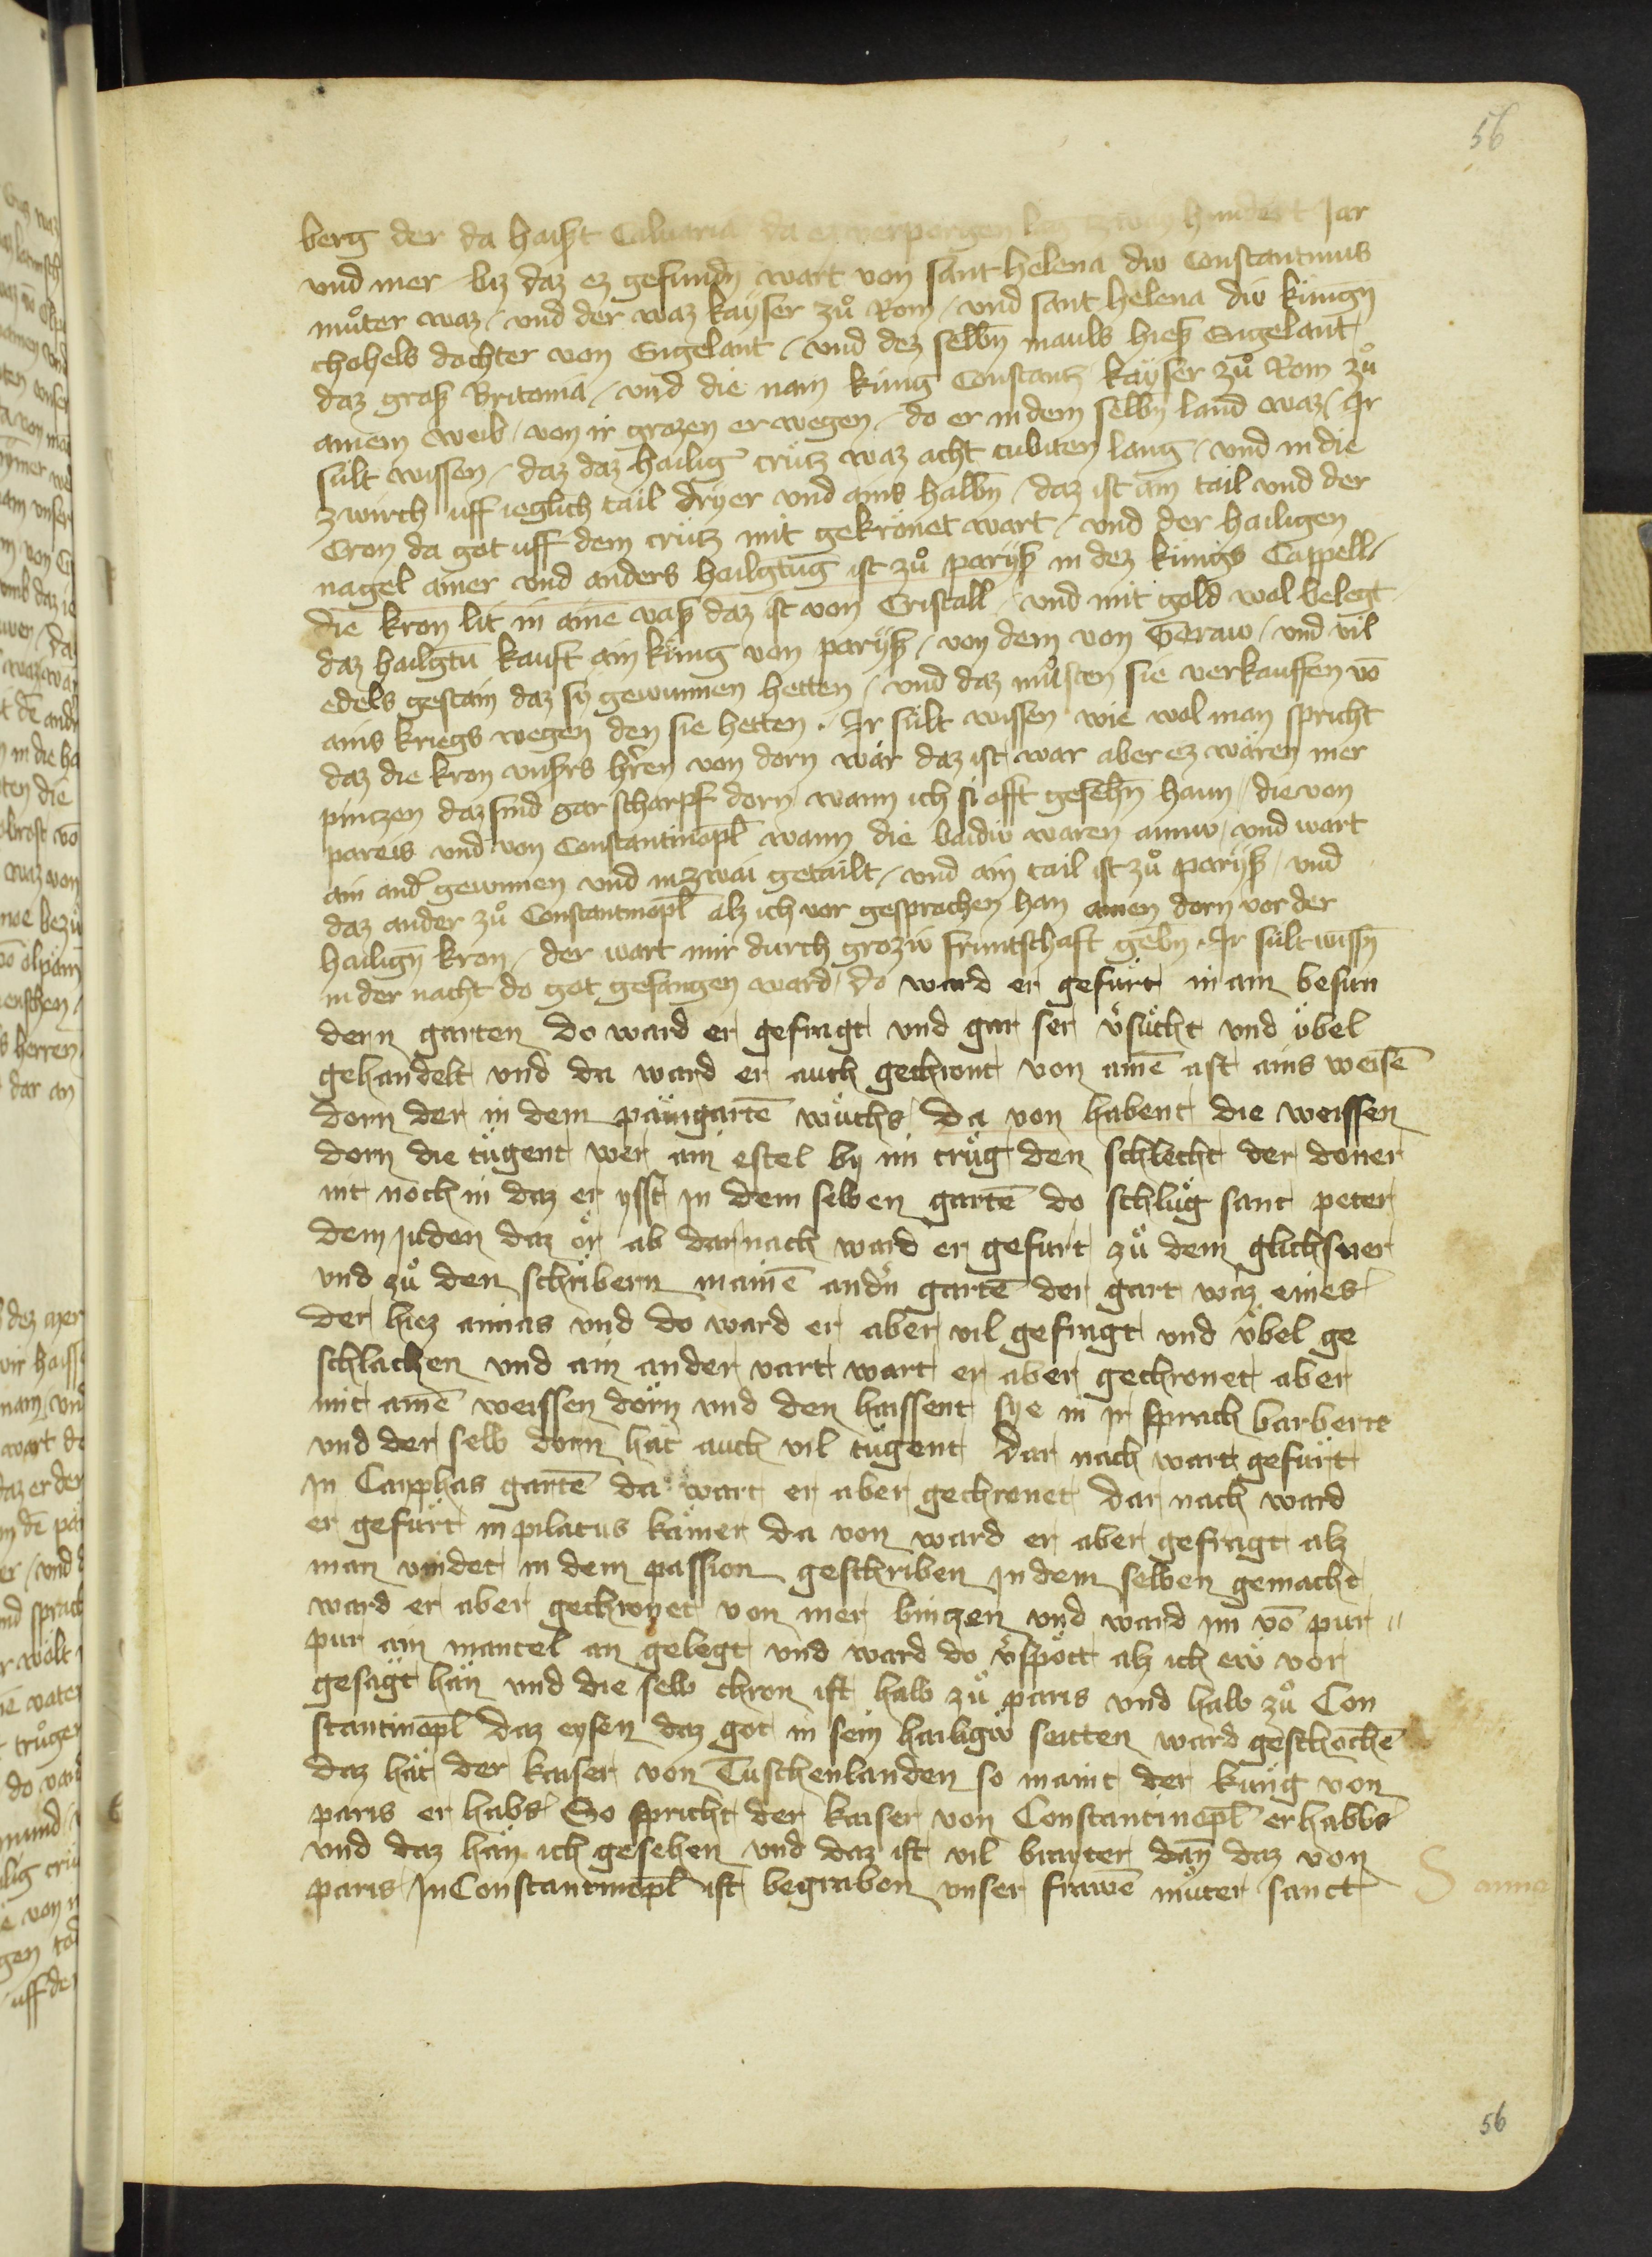 56
berg der da haist Caluaria da ez verporgen lag zway hundert Jar
vnd mer / biz daz ez gefundn̄ wart von sant helena diw Constantinus
mů̊ter waz / vnd der waz kayser zů Rom / vnd sant helena diw künign̄
chohels dochter von Engelant / vnd dez selbn̄ mauls hieß Engelant
daz groß Britania / vnd die nam küng Constantz kayser zů Rom zů
ainem weib / von ir grozen er wegen / do er in dem selbn̄ land waz / Ir
sült wissen / daz daz hailig crütz waz acht cubiten lang / vnd in die
zwirch uff ieglich tail dryer vnd ains halbn̄ / daz ist ain tail vnd der
Cron da got uff dem crütz mit gekrönet wart / vnd der hailigen
nagel ainer vnd anders hailgtung ist zů paryß in dez künigs Cappell /
die kron lit in ainē vaß daz ist von Cristall / vnd mit gold wol belegt
daz hailgtū kauft ain küng von paryß / von dem von Genaw / vnd vil
edels gestain daz sy gewunnen hetten / vnd daz můsten sie verkauffen vō
ains kriegs wegen den sie hetten . Ir sült wissen wie wol man spricht
daz die kron vnsers hr̄en von dorn wär daz ist war aber ez wären mer
pintzen daz sind gar scharpf dorn wann ich si offt gesehn̄ haun / die von
pareis vnd von Constantinopl̄ wann die baidiw waren ainiw / vnd wart
ain and' gewunnen vnd in zwai getailt / vnd ain tail ist zů paryß / vnd
daz ander zů Constantinopl̄ alz ich vor gesprochen han ainen dorn vor der
hailign̄ kron / der wart mir durch groziw fruntschaft gebn̄ . Ir sült wissn̄
in der nacht do got gefangen ward / do ward er gefürt in ain besun
dern garten do ward er gefragt vnd gar ser v'sücht vnd übel
gehandelt vnd da ward er auch gechront von ainē ast ains weisē
dorn der in dem paungartē wuchs da von habent die weissen
dorn die tugent wer ain estel by im trüg den schlecht der doner
nit noch in daz er ysst In dem selben gartē do schlüg sant peter
dem juden daz ör ab dar nach ward er gefurt zů dem glichsner
vnd zů den schribern in ainē andn̄ gartē der gart waz eines
der hiez annas vnd do ward er aber vil gefragt vnd übel ge
schlachen vnd ain ander vart wart er aber gechronet aber
mit ainē weissen dorn vnd den haissent sye in jr sprach barberis
vnd der selb dorn hat auch vil tugent dar nach wart gefürt
In Cayphas gartē da wart er aber gechronet dar nach ward
er gefürt in pilatus kamer da von ward er aber gefragt alz
man vindet in dem passion geschriben In dem selben gemacht
ward er aber gechronet von mer bintzen vnd ward im vō pur
pur ain mantel an gelegt vnd ward do v'spött alz ich ew vor
gesagt han vnd die selb chron ist halb zů paris vnd halb zů Con
stantinopl̄ daz eysen daz got in sein hailigiw seitten ward geschochē
daz hät der kaiser von Tüschenlanden so maint der kung von
paris er habs So spricht der kaiser von Constantinopl̄ er habbs
vnd daz han ich gesehen vnd daz ist vil braiter dan̄ daz von
paris In Constantinopl̄ ist begraben vnser frawē můter sanct
S anna
56